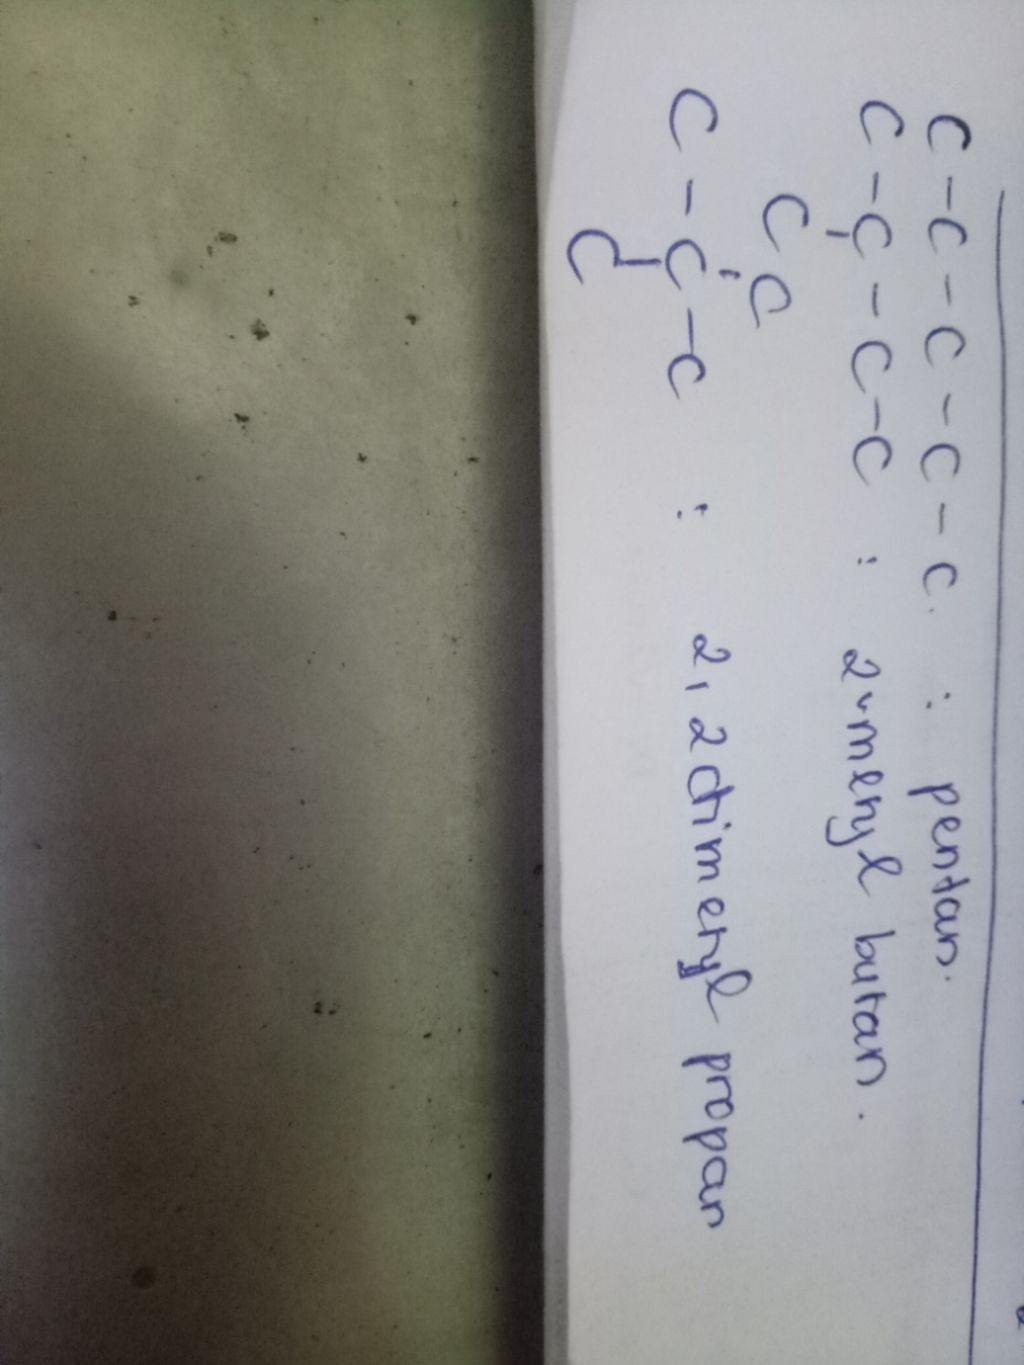 C-C-C-C-C. : pentan.
C-C-C-C : 2-metyl butan.
C
C
C-C-C : 2,2 dimetyl propan
C